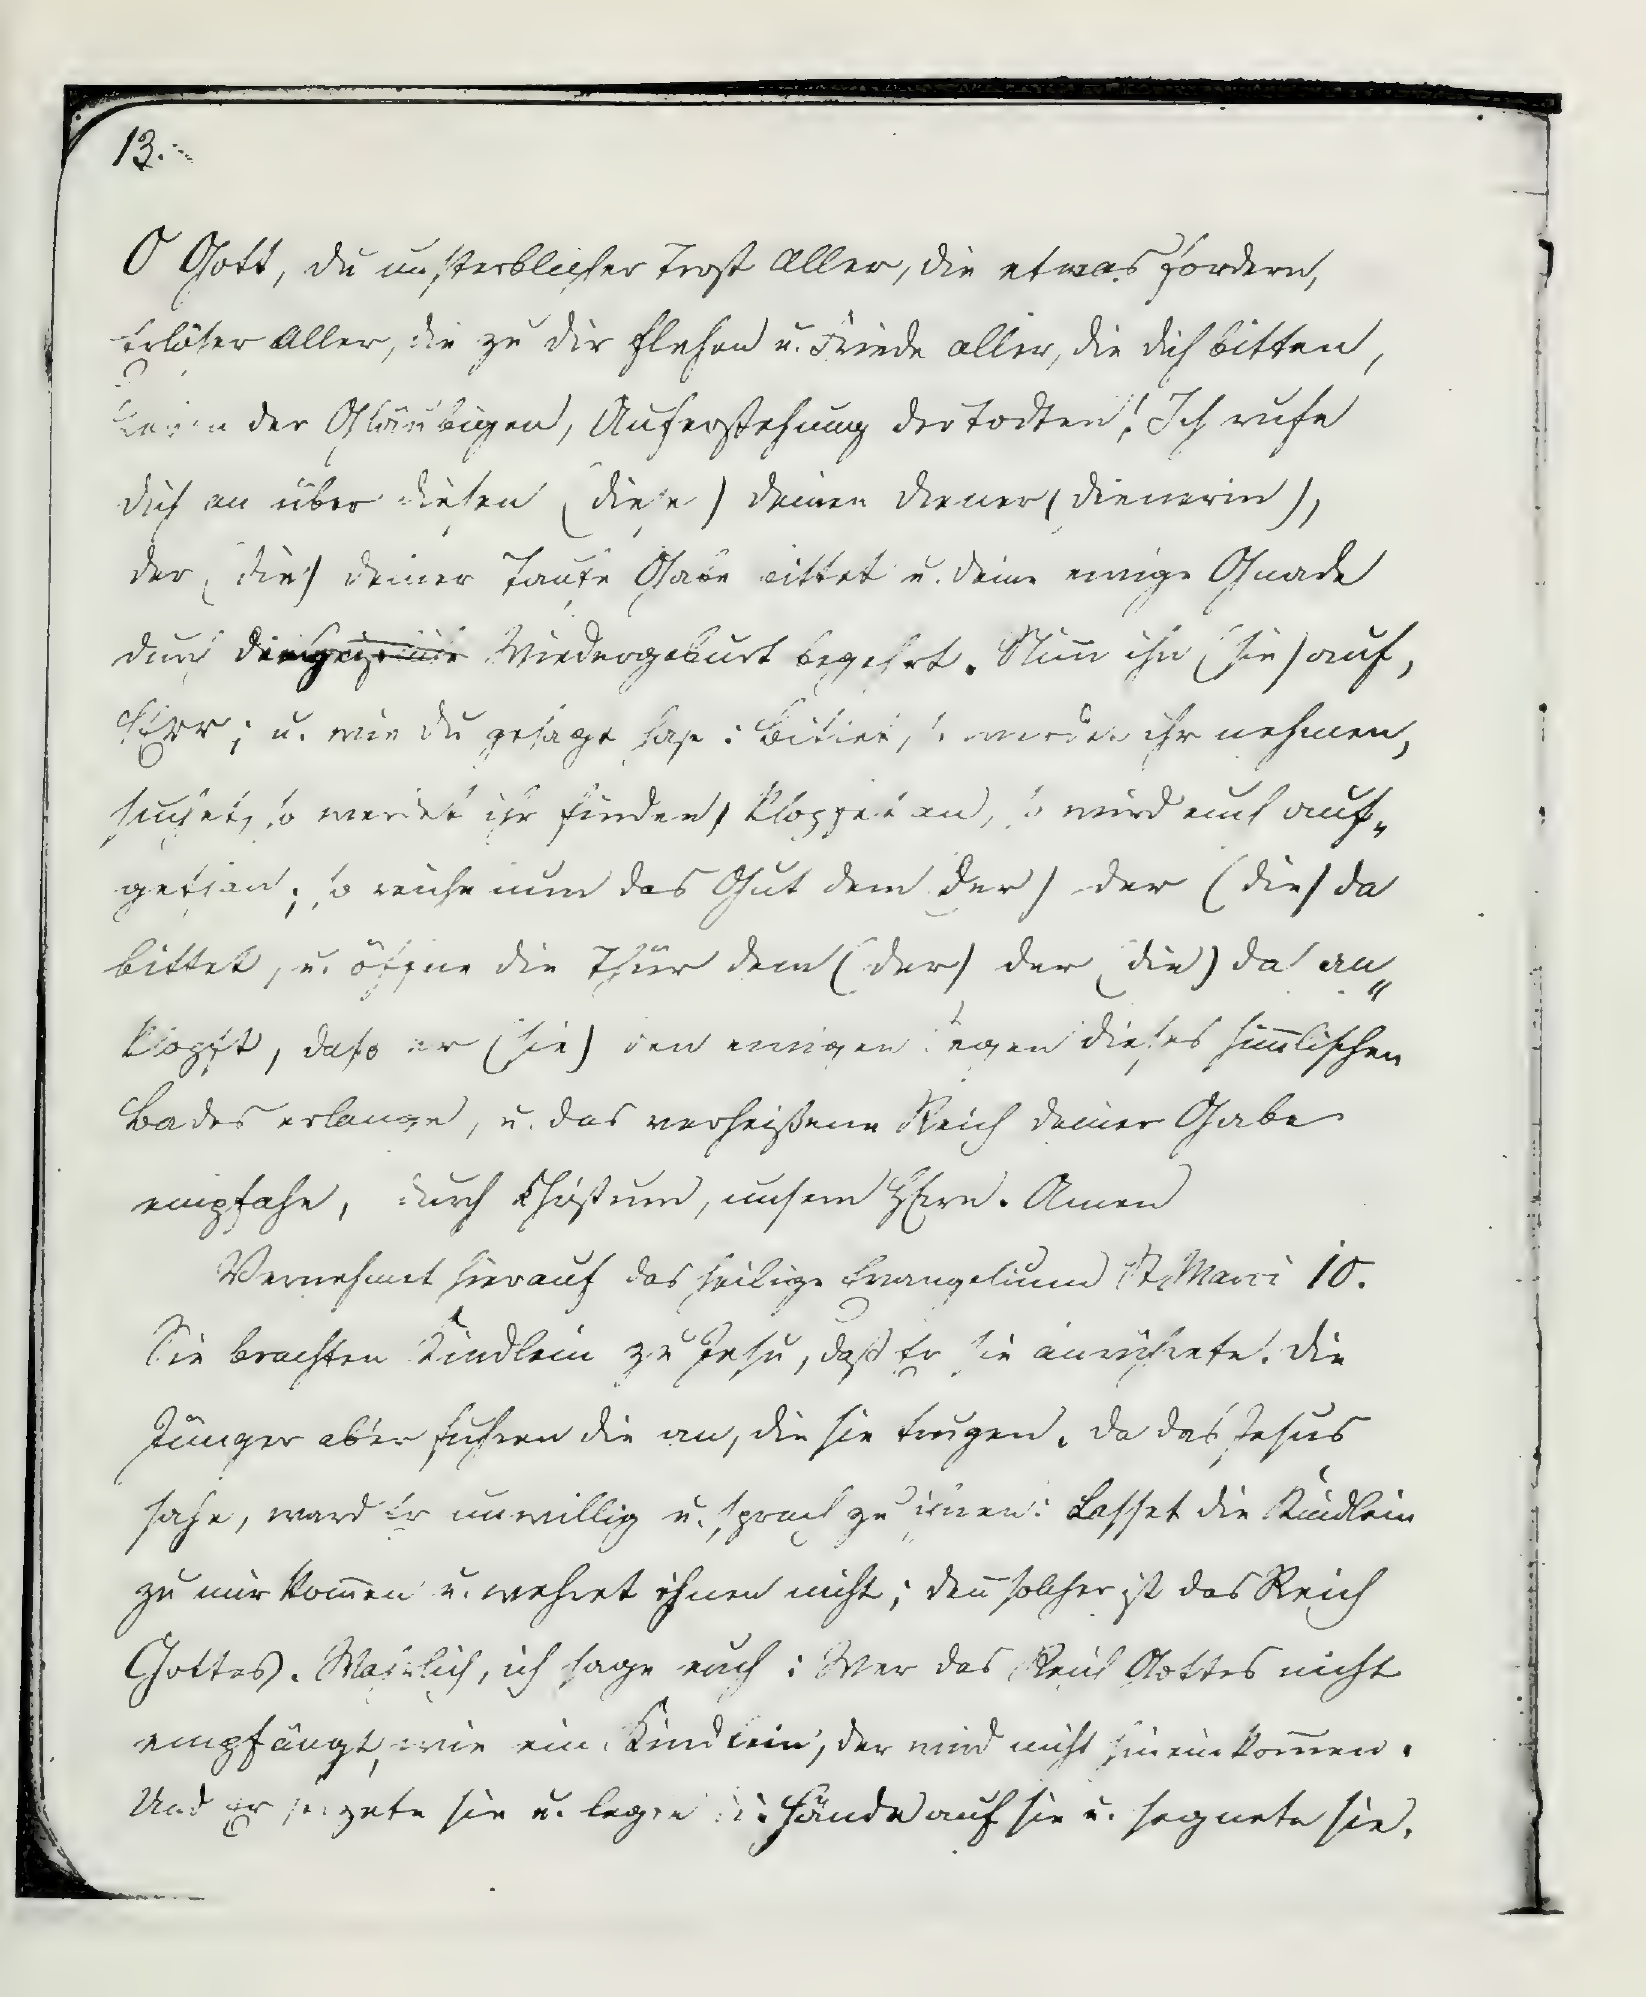 13.
O Gott, du unsterblicher Trost Aller, die etwas fordern,
Erlöser Aller, die zu dir flehen u. Friede aller, die dich bitten,
Leben der Gläubigen, Auferstehung der Todten! Ich rufe
dich an über diesen (diese) deinen Diener (Dienerin),
der (die) deiner Taufe Gabe bittet u. deine ewige Gnade
durch die Wiedergeburt begehrt. Nim̅ ihn (sie) auf,
HErr; u. wie du gesagt hast: Bittet, so werdet ihr nehmen,
suchet, so werdet ihr finden, klopfet an, so wird euch auf„
gethan; so reiche nun das Gut dem (der) der (die) da
bittet, u. öffne die Thür dem (der) der (die) da an„
klopft, daß er (sie) den ewigen Segen dieses him̅lischen
Bades erlange, u. das verheißene Reich deiner Gabe
empfahe, durch Christum, unsern HErrn. Amen
Vernehmet hierauf das heilige Evangelium St. Marci 10.
Sie brachten Kindlein zu Jesu, daß Er sie anrührete. Die
Jünger aber fuhren die an, die sie trugen. Da das Jesus
sahe, ward Er unwillig u. sprach zu ihnen: Lasset die Kindlein
zu mir kom̅en u. wehret ihnen nicht; den̅ solcher ist das Reich
Gottes. Wahrlich, ich sage euch: Wer das Reich Gottes nicht
empfängt, wie ein Kindlein, der wird nicht hineinkom̅en.
Und Er herzete sie u. legte die Hände auf sie u. segnete sie.